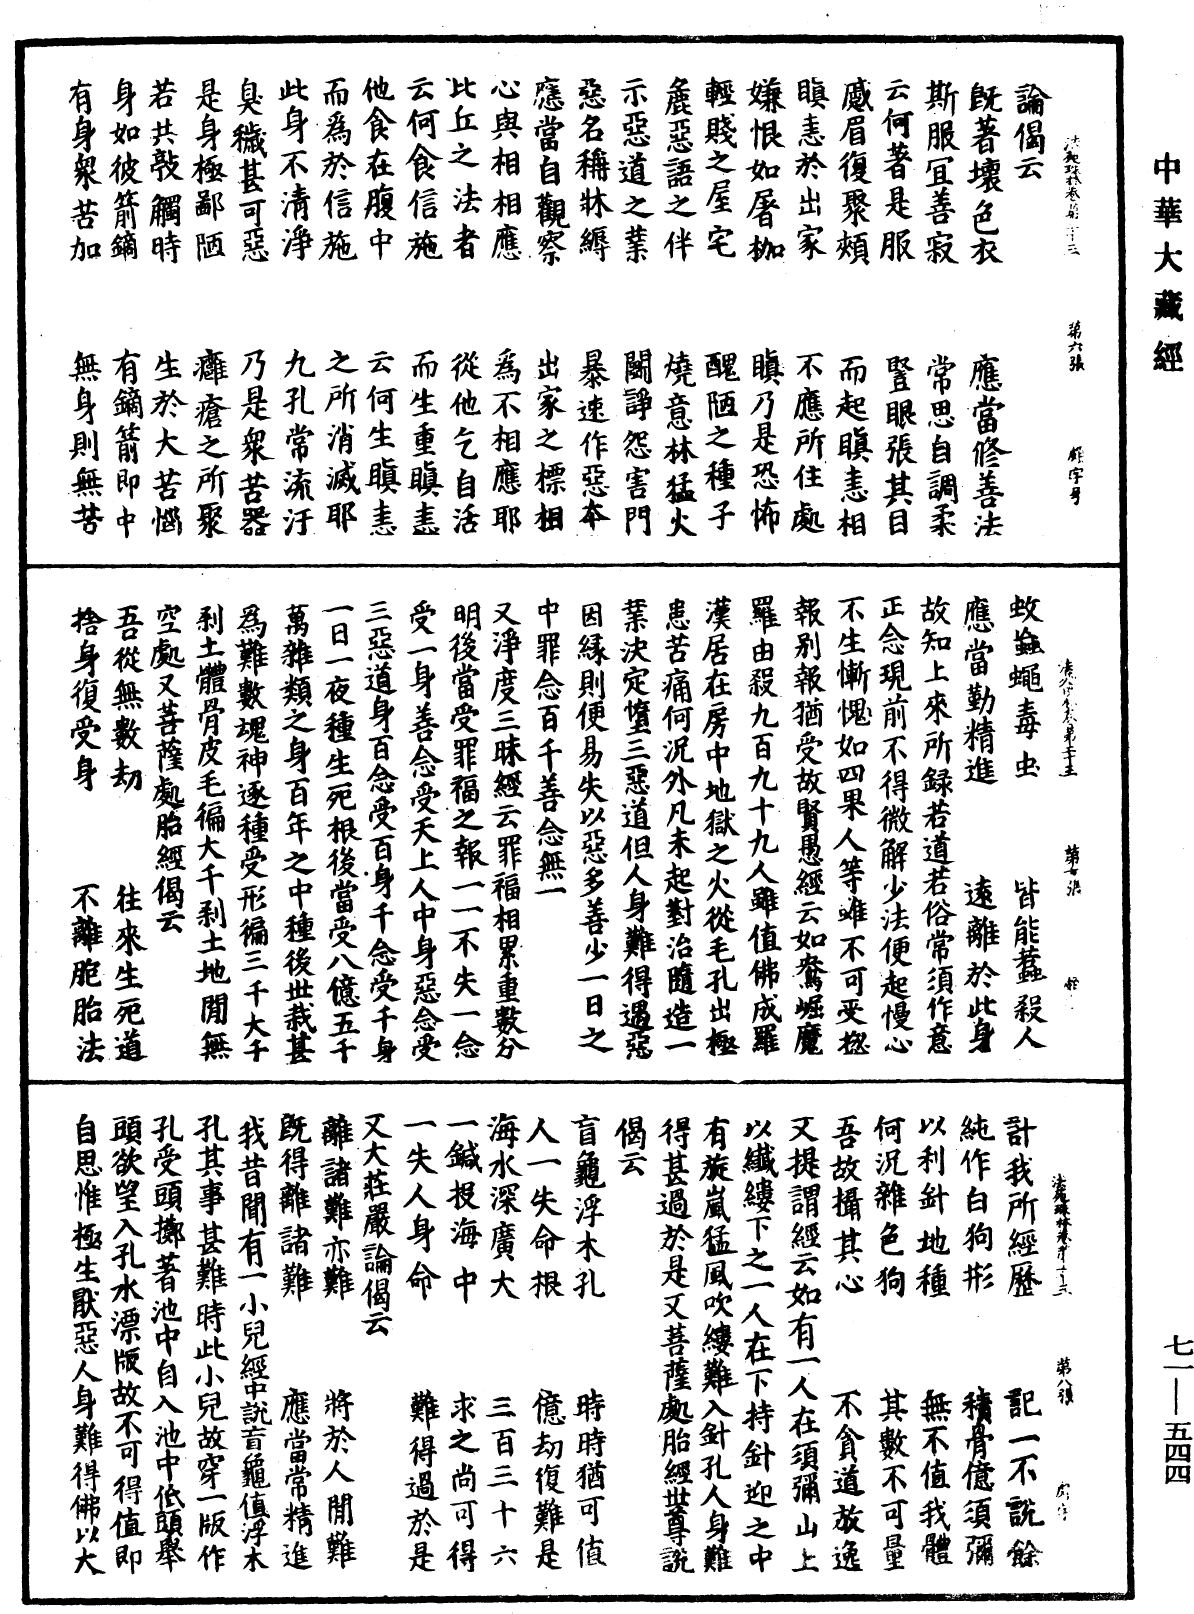 中華大藏經
七一—五四四
論偈云
既著壞色衣　應當修善法
斯服冝善寂　常思自調柔
云何著是服　竪眼張其目
蹙眉復聚頰　而起瞋恚相
瞋恚於出家　不應所住處
嫌恨如屠枷　瞋乃是恐怖
輕賤之屋宅　醜陋之種子
麁惡語之伴　燒意林猛火
示惡道之業　鬪諍怨害門
惡名稱牀縟　暴速作惡本
應當自觀察　出家之標相
心與相相應　為不相應耶
比丘之法者　從他乞自活
云何食信施　而生重瞋恚
他食在腹中　云何生瞋恚
而為於信施　之所消滅耶
此身不清淨　九孔常流汙
臭穢甚可惡　乃是衆苦器
是身極鄙陋　癰瘡之所聚
若共㪣觸時　生於大苦惱
身如彼箭鏑　有鏑箭即中
有身衆苦加　無身則無苦
蚊蝱蠅毒虫　皆能蟄殺人
應當勤精進　遠離於此身
故知上來所録若道若俗常須作意
正念現前不得微解少法便起慢心
不生慚愧如四果人等雖不可受惣
報别報猶受故賢愚經云如鴦崛魔
羅由殺九百九十九人雖值佛成羅
漢居在房中地獄之火從毛孔出極
患苦痛何況外凡未起對治隨造一
業決定墮三惡道但人身難得遇惡
因縁則便易失以惡多善少一日之
中罪念百千善念無一
又淨度三昧經云罪福相累重數分
明後當受罪福之報一一不失一念
受一身善念受天上人中身惡念受
三惡道身百念受百身千念受千身
一日一夜種生死根後當受八億五千
萬雜類之身百年之中種後世栽甚
為難數魂神逐種受形徧三千大千
刹土體骨皮毛徧大千刹土地閒無
空處又菩薩處胎經偈云
吾從無數劫　往來生死道
捨身復受身　不離胞胎法
計我所經歷　記一不說餘
純作白狗形　積骨億須彌
以利針地種　無不值我體
何況雜色狗　其數不可量
吾故攝其心　不貪道放逸
又提謂經云如有一人在須彌山上
以纖縷下之一人在下持針迎之中
有旋嵐猛風吹縷難入針孔人身難
得甚過於是又菩薩處胎經世尊說
偈云
盲龜浮木孔　時時猶可值
人一失命根　億劫復難是
海水深廣大　三百三十六
一鍼投海中　求之尚可得
一失人身命　難得過於是
又大莊嚴論偈云
離諸難亦難　將於人閒難
既得離諸難　應當常精進
我昔聞有一小兒經中說盲龜值浮木
孔其事甚難時此小兒故穿一版作
孔受頭擲著池中自入池中低頭舉
頭欲望入孔水漂版故不可得值即
自思惟極生厭惡人身難得佛以大